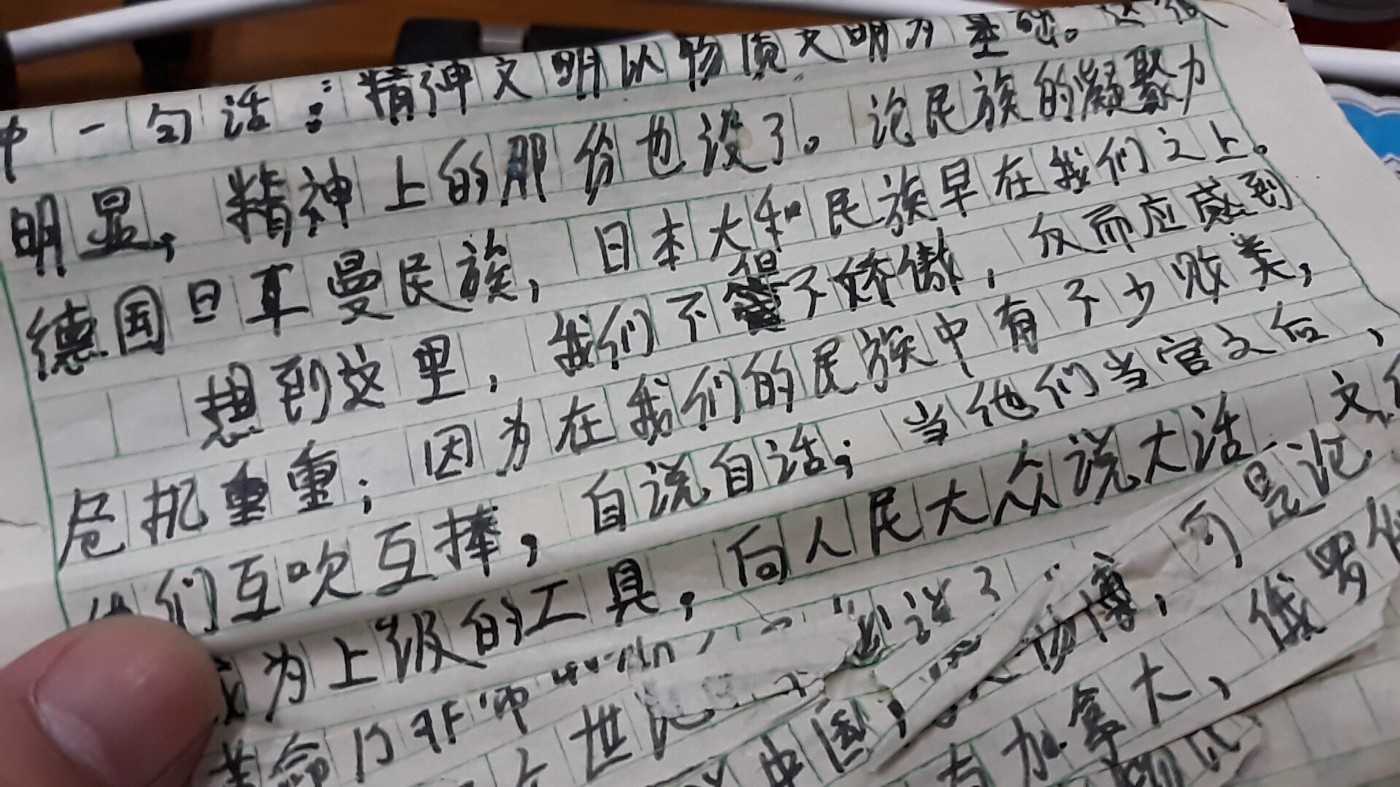 中一句话：精神文明以物质文明为基础。这很
明显，精神上的那份也没了。论民族的凝聚力
德国日耳曼民族，日本大和民族早在我们之上。
想到这里，我们不得不娇傲，反而应感到
危机重重；因为在我们的民族中有不少败类，
他们互吹互捧，自说自话；当他们当官之后，
成为上级的工具，向人民大众说大话
革命的
世 中国， 博，可是论
有加拿大，俄罗